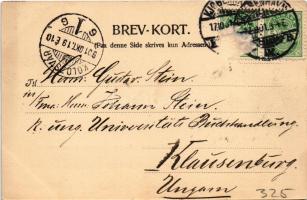 BREV-KORT.
(Paa denne Side skrives kun Adressen.)
KOLOZSVÁR
Til Herrn Gustav Stein
Firma Herrn Johann Stein.
k. ung. Universitäts Buchhandlung
Klausenburg.
Ungarn
325